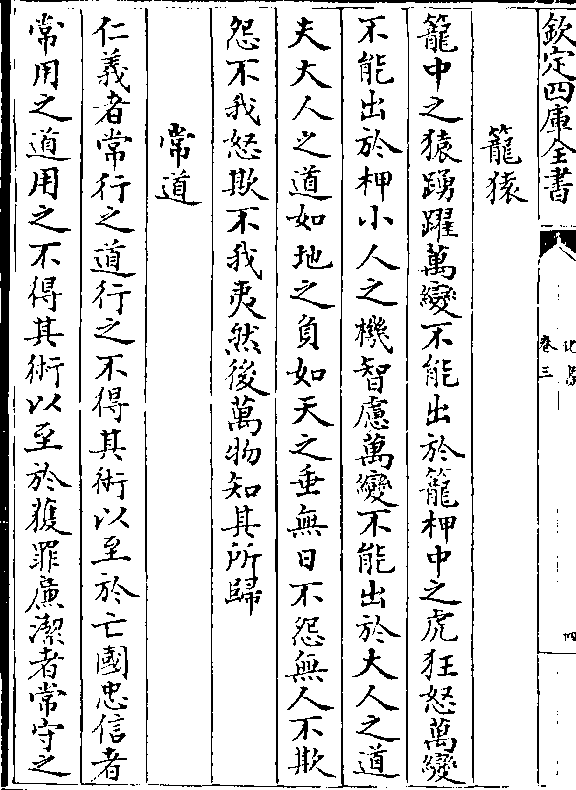 欽定四庫全書
化書
卷三
四
籠猿
籠中之猿踴躍萬變不能出於籠柙中之虎狂怒萬變
不能出於柙小人之機智慮萬變不能出於大人之道
夫大人之道如地之負如天之垂無日不怨無人不欺
怨不我怒欺不我夷然後萬物知其所歸
常道
仁義者常行之道行之不得其術以至於亡國忠信者
常用之道用之不得其術以至於獲罪廉潔者常守之